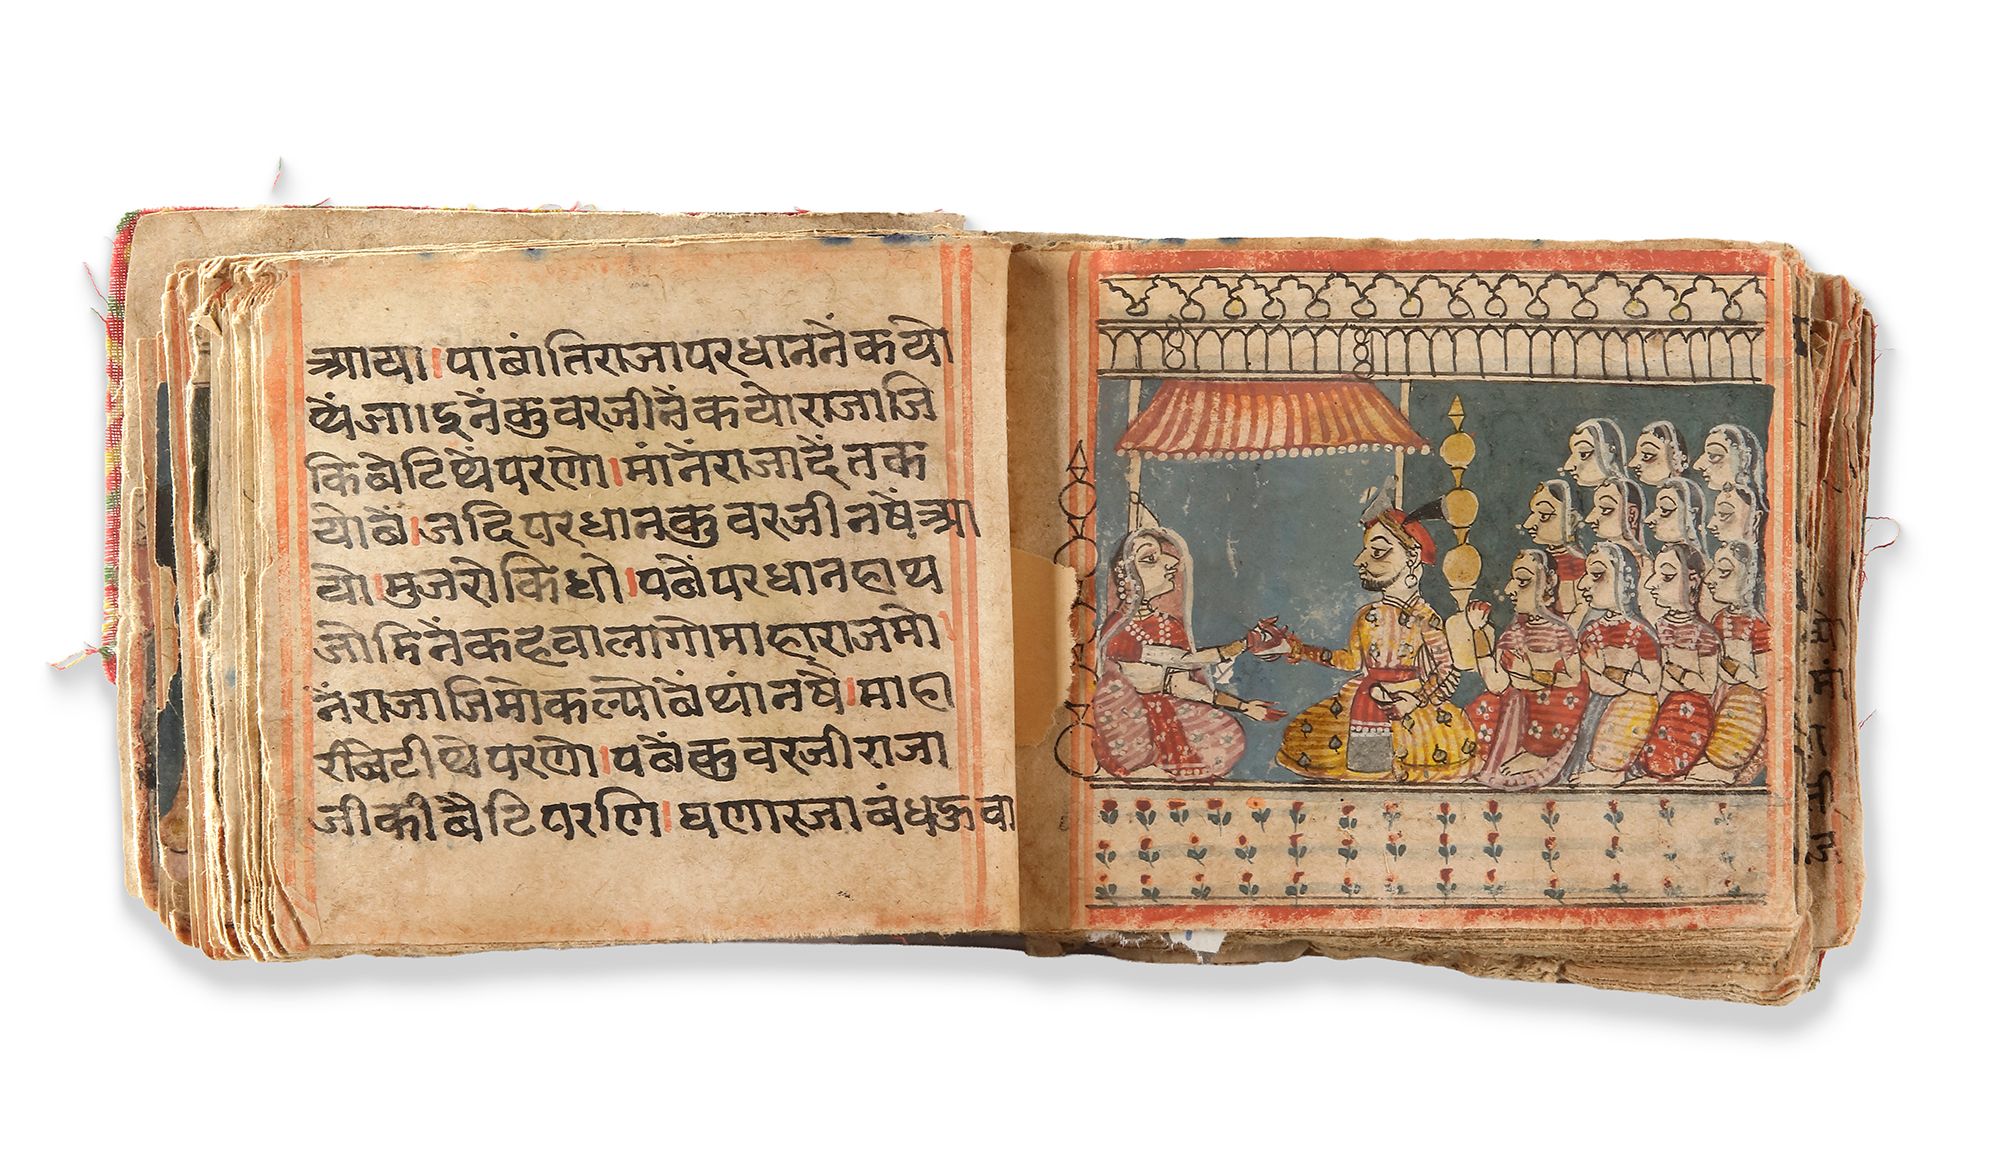 आया।पाबांतिराजापरधाननेंकयो
थेंजा।इनेंकुवरजीनेंकयोराजाजि
किबेटिथेंपरणो।मांनेंराजादेंतक
योबें।जदिपरधानकुवरजीनषेंआ
यो।मुजरोकिधो।पबेंपरधानहाथ
जोडिनेंकहवालागोमाहाराजमो
नेंराजाजिमोकल्योबेंथांनषें।माहा
रीबेटीथेपरणो।पबेंकुवरजीराजा
जीकीबैटिपरणि।घणारजाबंधकुवा